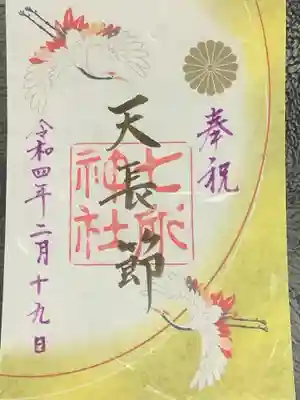 奉祝
天長節
七所
神社
令和四年二月十九日